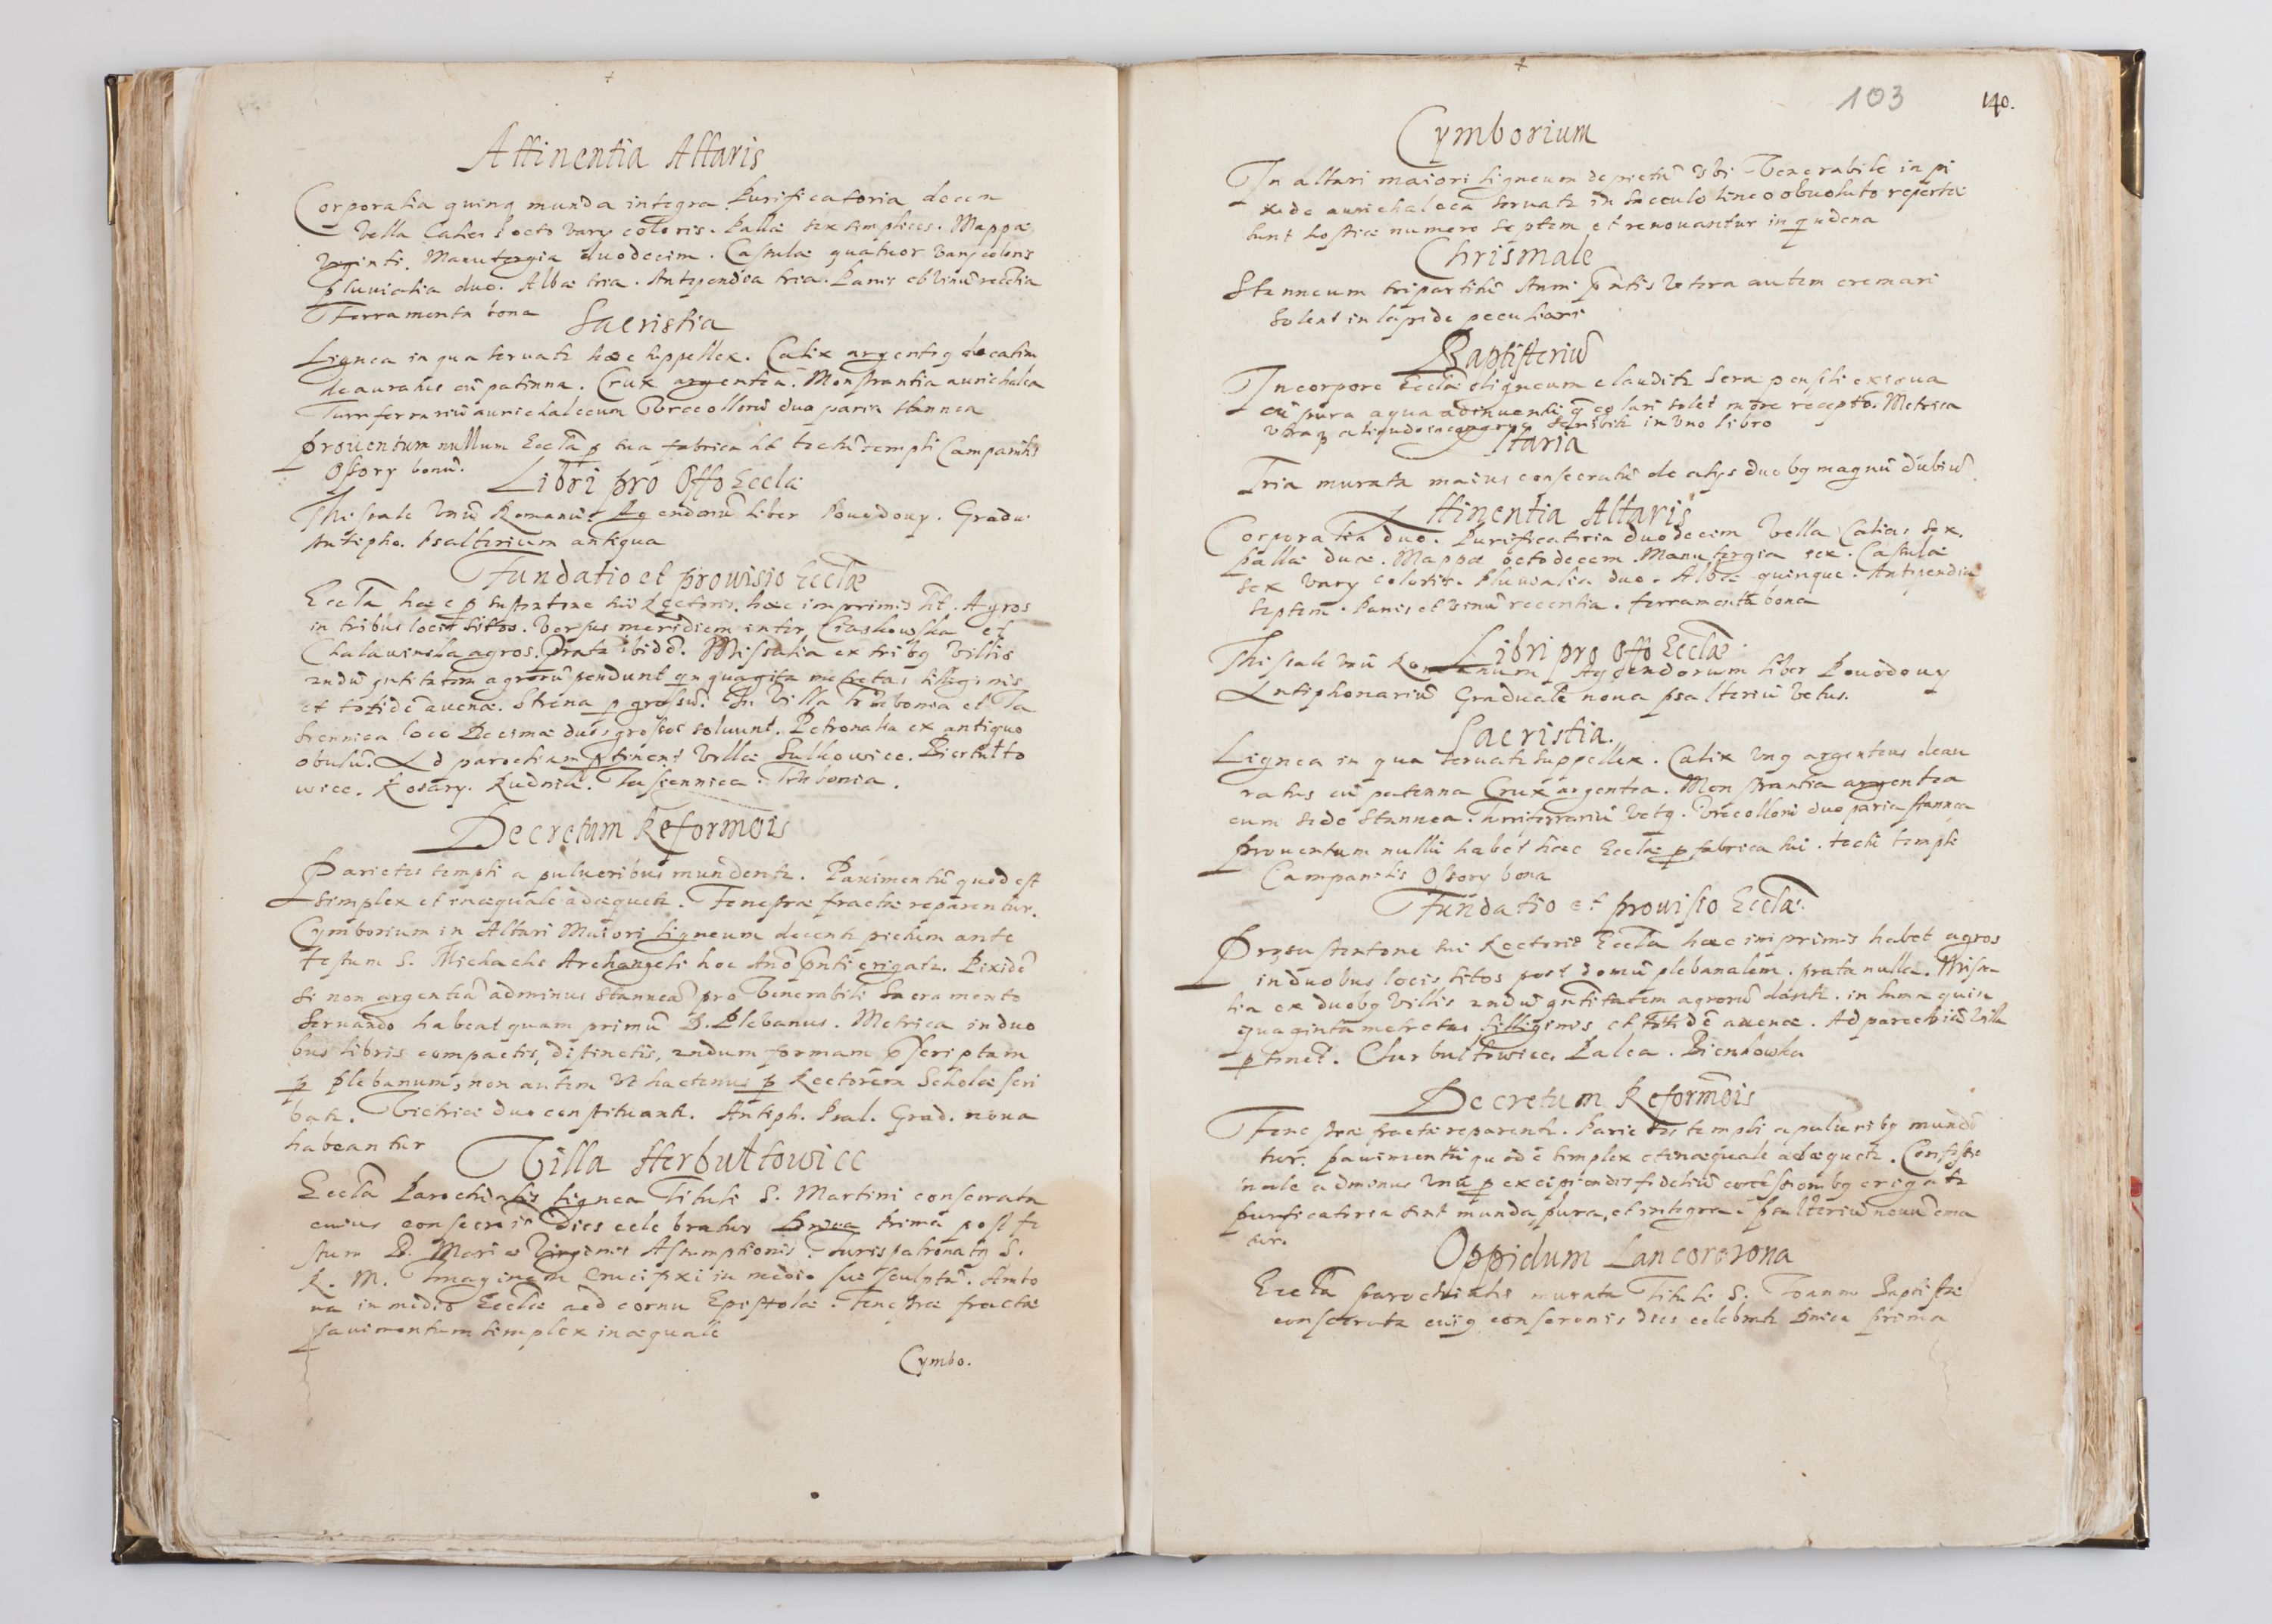 Attinentia Altaris
Corporalia quinq munda integra. Purificatoria decem
Vella Calicis octo vary coloris. Pallæ sex simplices. Mappæ
viginti. Manutergia duodecim. Casulæ quatuor vary coloris
pluuialia duo. Albæ tria. Antipendia tria. Panis et vinũ recentia
Ferramenta bona
Sacristia
Lignea in qua seruatr hæc suppellex. Calix argenteg
deauratus cũ patinna. Crux argentea. Monstrantia aurichalcea
Turriferrariũ aurichalceum Vrceollorũ duo paria stannea
prouentum nullum Eccla p sua fabrica ht tectũ templi Campanilis
Ossory bonũ.
Libri pro Offo Ecclæ
Missale vnũ Romanũ. Agendorũ liber Pouodouy. Gradu.
Antipho. Psalterium antiqua
Fundatio et prouisio Ecclæ
Eccla hæc p sustentone sui Rectoris. hæc imprimis ht. Agros
in tribus locis sitos. Versus meridiem inter Ciaskowska et
Chalawinska agros. Prata ibidẽ. Missalia ex tribg villis
2ndũ qntitatem agrorũ pendunt quinquaginta metretas silliginis
et totidẽ auenæ. Strena p grossũ. In villa Trzebonia et Ja
siennica loco Decimæ duos grossos soluunt. Petronalia ex antiquo
obulũ. Ad parochiam ptinent villæ Sulkowice. Biertulto
wice. Kosary. Rudnik. Jasiennica. Trzebonia.
Decretum Reformois
Parietes templi a pulueribus mundentr. Pauimentũ quod est
simplex et inæquale adæquetr. Fenestræ fractæ reparentur.
Cymborium in Altari Maiori ligneum decentr pictum ante
festum S. Michaelis Archangeli hoc Año pñti erigatr. Pixidẽ
si non argenteã adminus stanneã pro Venerabili Sacramento
seruando habeat quam primũ D. Plebanus. Metrica in duo
bus libris compactis, distinctis, 2ndum formam pscriptam
p plebanum, non autem vt hactenus p Rectorem Scholæ scri
batr. Victrici duo constituantr. Antiph. Psal. Grad. noua
habeantur
Villa Herbultowice
Eccla Parochialis lignea Tituli S. Martini consecrata
cuius consecrois dies celebratur Dnica prima post fe
stum B. Mariæ Virginis Assumptionis. Jurispatronatg S.
R. M. Imaginem Crucifixi in medio sui sculptũ. Ambo
na in medio Ecclæ ad cornu Epistolæ. Fenestræ fractæ
pauimentum simplex inæquale
Cymbo.
103
140.
Cymborium
In altari maiori ligneum depictũ vbi Venerabile in pi
xide aurichalcea seruatr in sacculo lineo obuoluto repertæ
sunt hostiæ numero septem et renouantur in qndena
Chrismale
Stanneum tripartitũ Anni pñtis Vetera autem cremari
solent in lapide peculiari
Baptisteriũ
In corpore Ecclæ ligneum clauditr sera pensili
cũ pura aqua
vtraq in vno libro
Altaria
Tria murata maius consecratũ de alijs duobg magnũ dubiũ
Attinentia Altaris
Corporalia duo. Purificatoria duodecim Vella Calicis sex.
Pallæ duæ. Mappæ octodecem. Manutergia sex. Casulæ
sex vary coloris. Pluuialia duo. Albæ quinque. Antipendia
septem. Panis et vinũ recentia. ferramenta bona
Libri pro Offo Ecclæ
Missale vnũ Romanum Agendorum liber Pouodouy
Antiphonariũ Graduale noua psalteriũ vetus.
Sacristia.
Lignea in qua seruatr suppellex. Calix vng argenteus deau
ratus cũ patenna Crux argentea. Monstrantia argentea
cum sede stannea. Turriferrariũ vetg. Vrceollorũ duo paria stannea
prouentum nullũ habet hæc Eccla p fabrica sui. tectũ templi
Campanilis Ossory bona
Fundatio et prouisio Ecclæ
Pro sustentone sui Rectoris Eccla hæc imprimis habet agros
in duobus locis sitos post domũ plebanalem. prata nulla. Missa
lia ex duobg villis 2ndũ qntitatem agrorũ dantr. in summa quin
quaginta metretas silliginis et totidẽ auenæ. Ad parochiã villæ
ptinet. Charbultowice. Palca. Bienkowka
Decretum Reformois
Fenestræ fractæ reparentr. Parietes templi a pulueribg munden
tur. pauimentũ quod ẽ simplex et inæquale adæquetr. Confessio
nale adminus vnũ p excipiendis fideliũ confessionibg erigatr
purificatoria sint munda, pura, et integra. psalteriũ nouũ ema
tur.
Oppidum Lancorona
Eccla parochialis murata Tituli S. Joannis Baptistæ
consecrata cuig conseronis dies celebratr Dnica prima